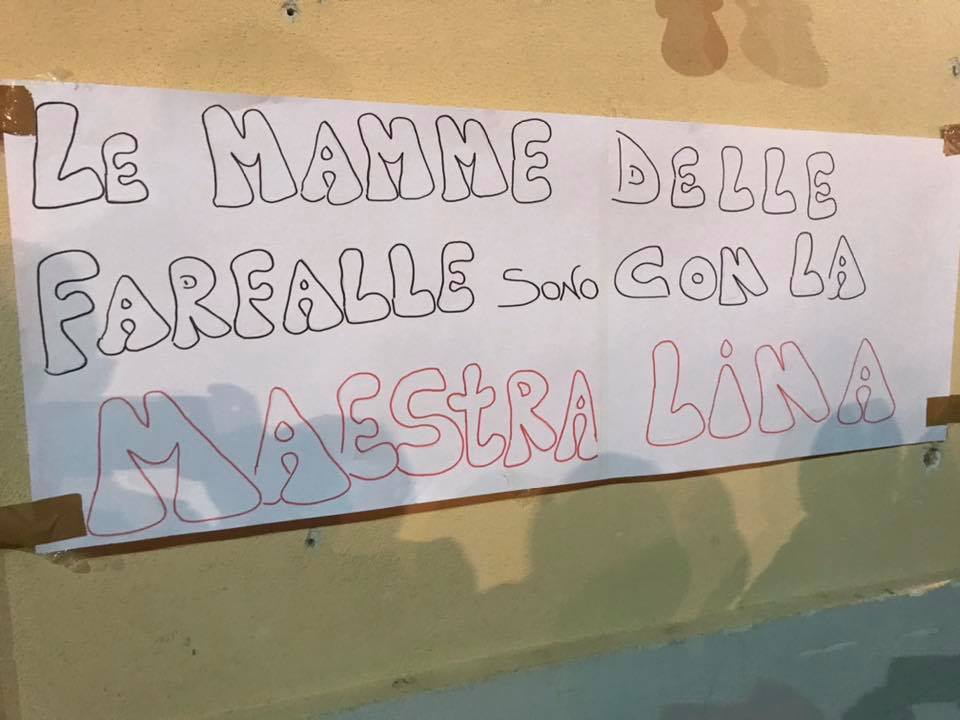 LE MAMME DELLE
FARFALLE SONO CON LA
MAESTRA LINA